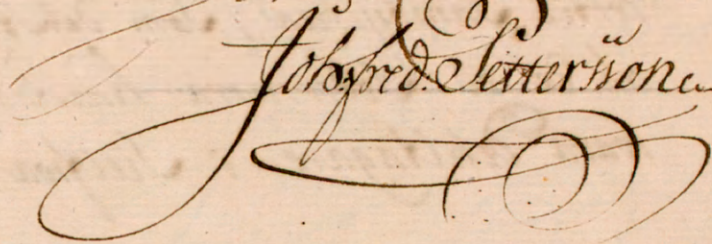 Joh: fred. Setterssone